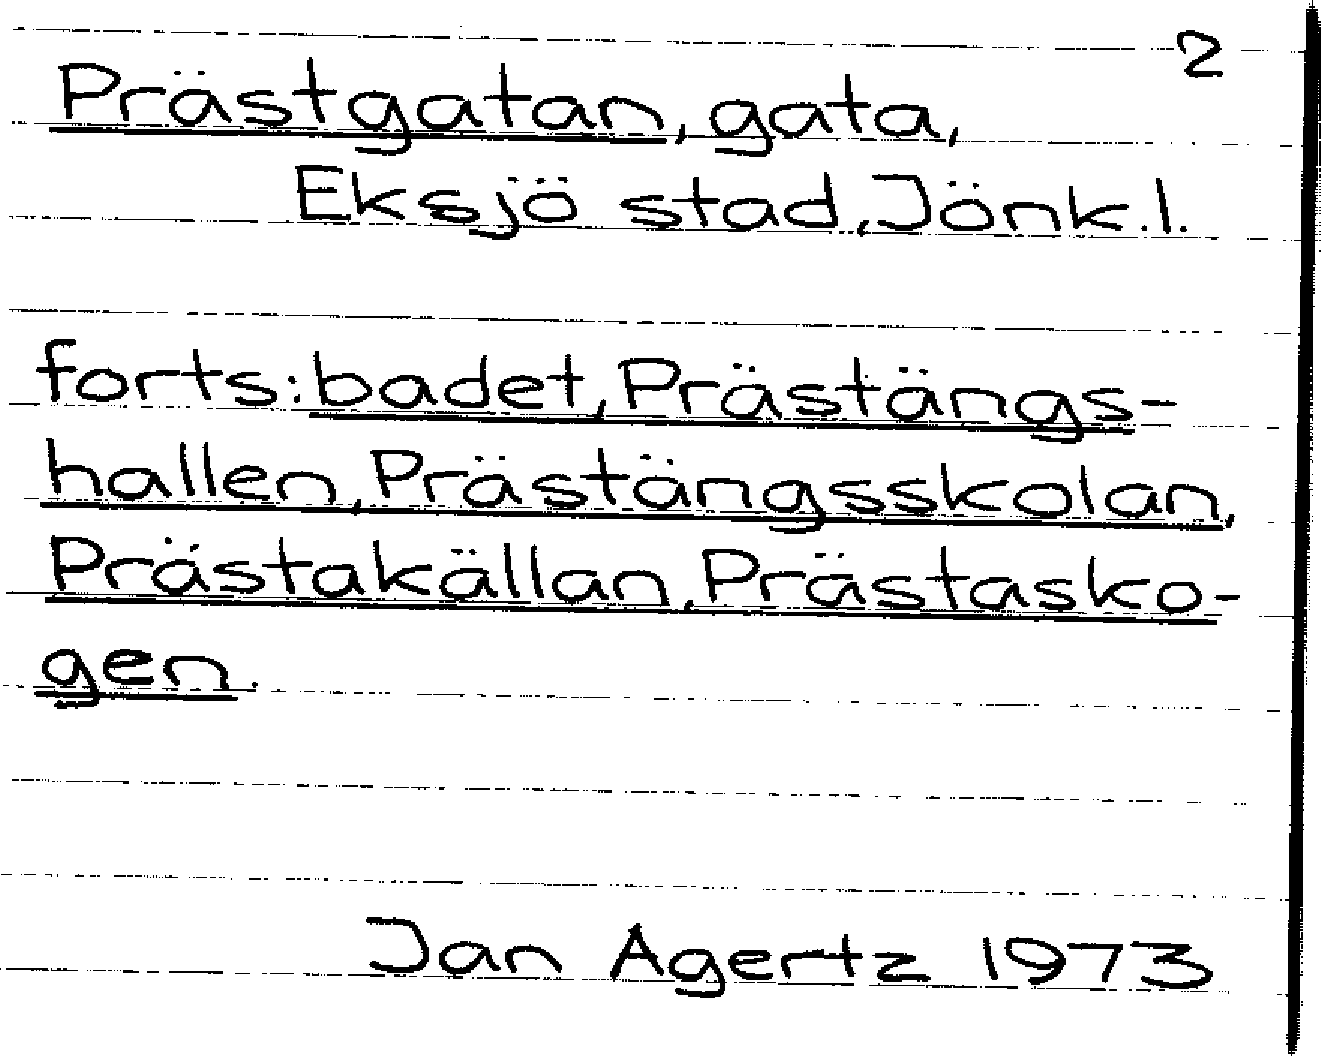 2
Prästgatan, gata,
Eksjö stad, Jönk.l.
forts: badet, Prästängs-
hallen, Prästängsskolan,
Prästakällan, Prästasko-
gen.
Jan Agertz 1973